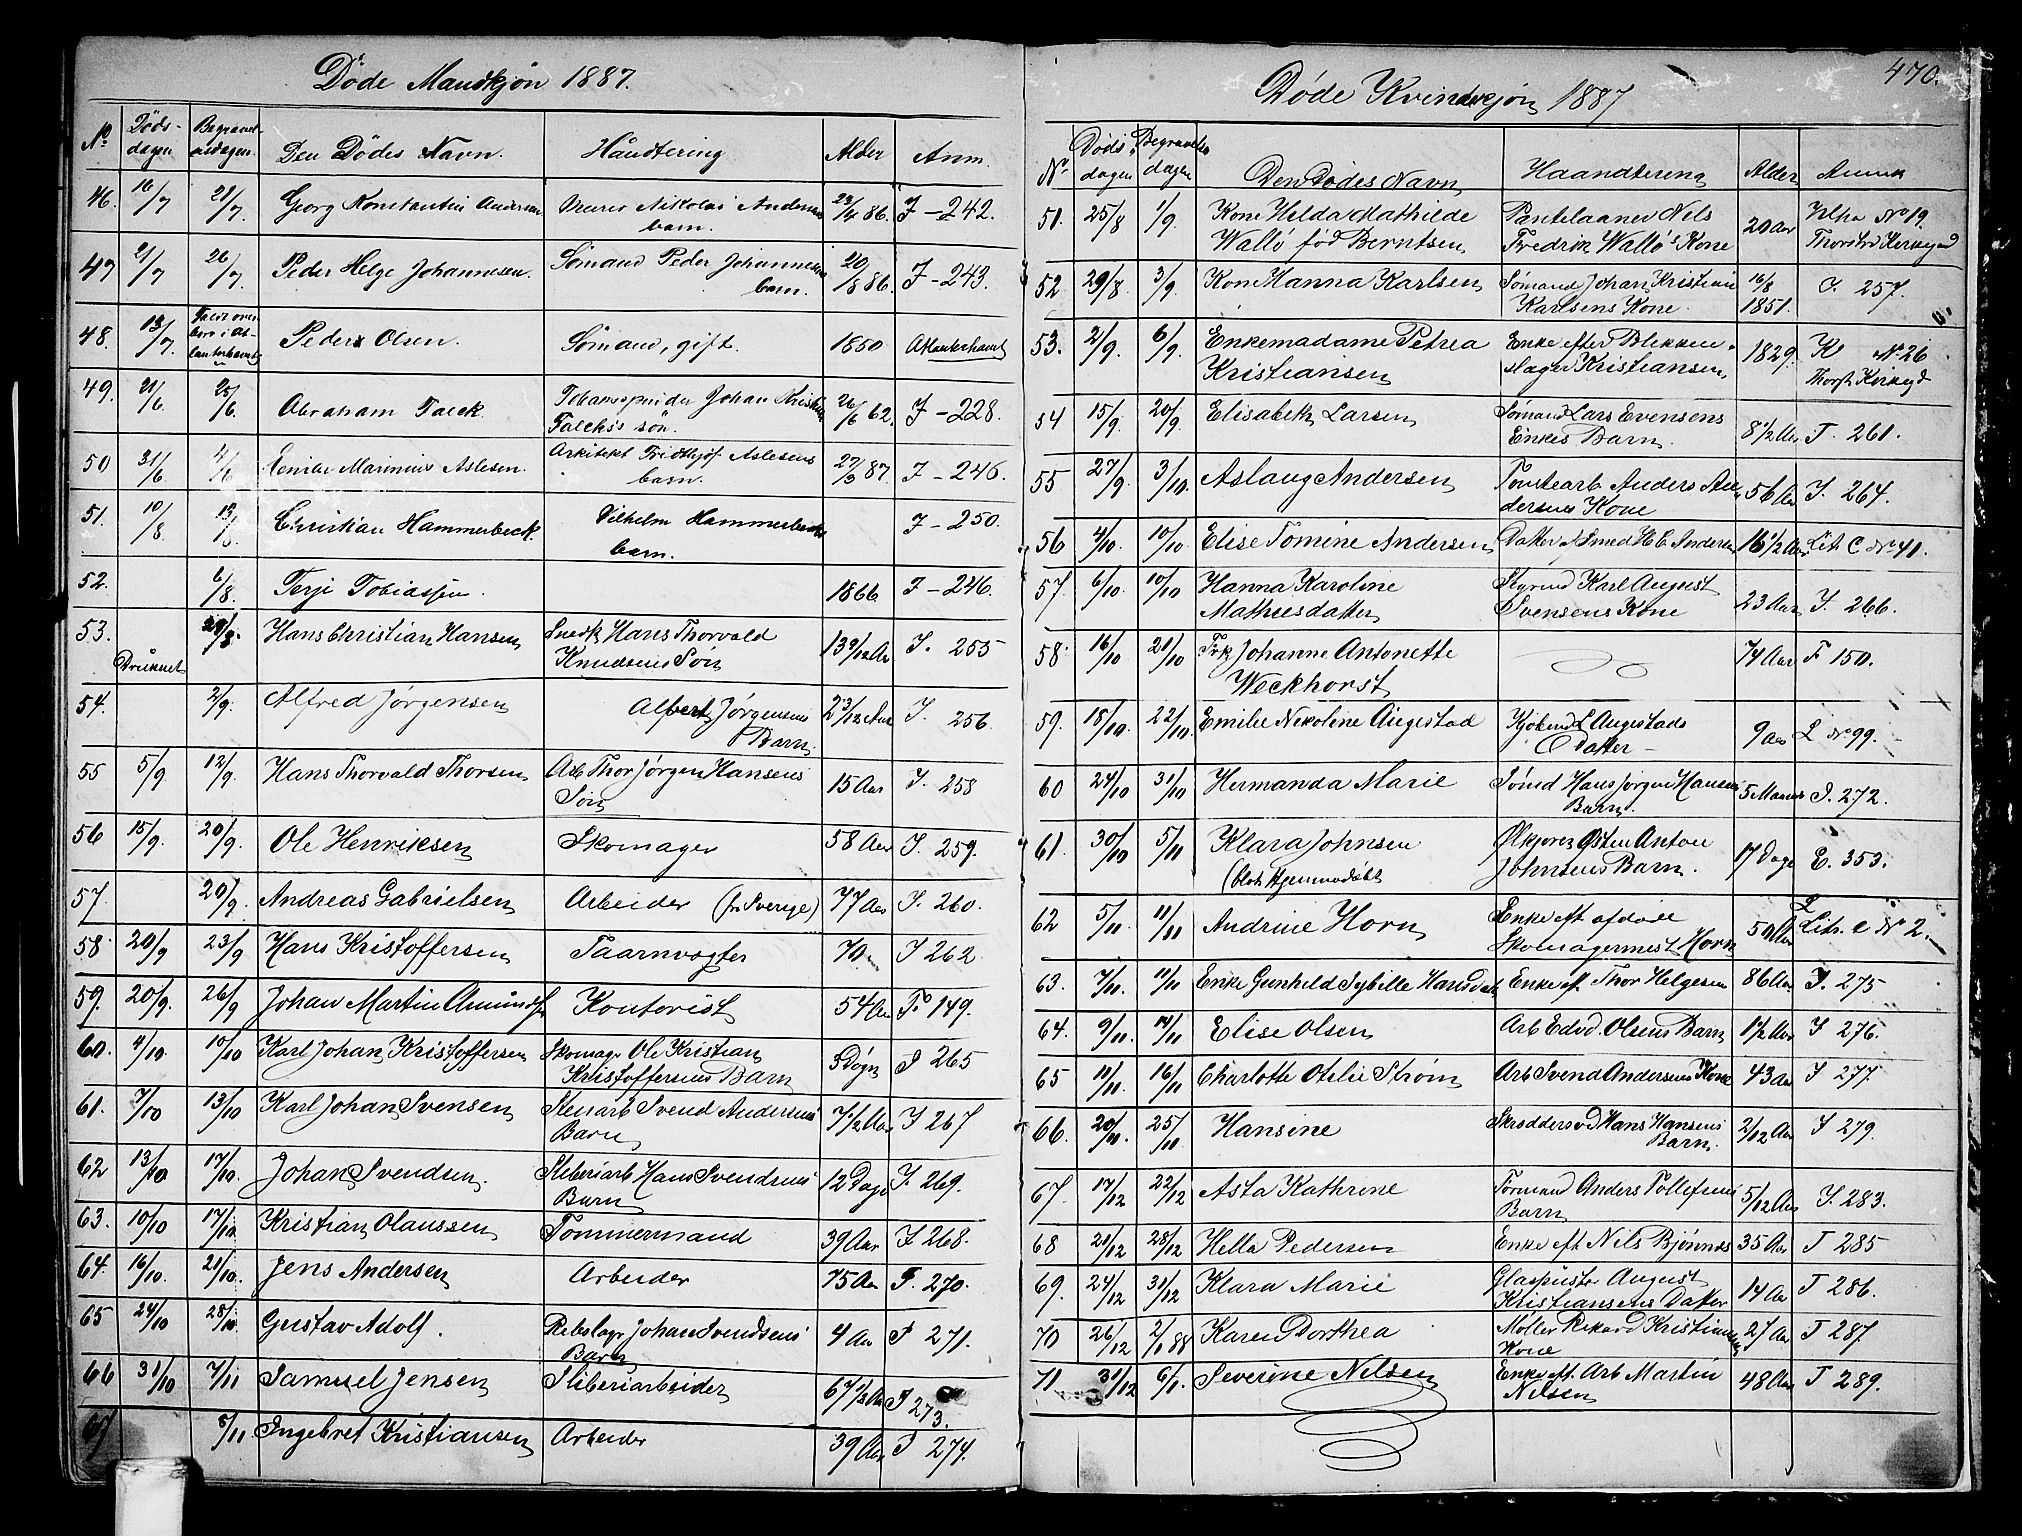 Døde Mandkjøn 1887.
No Døds-dagen Begravelsesdagen. Den Dødes Navn. Håndtering Alder Anm.
46. 16/7 21/7. Georg Konstantin Andersen Nikolai Andersens barn. 23/4 86. J - 242.
47 21/7 26/7. Peder Helge Johannesen. Sømand Peder Johannesens barn. 20/8 86. J - 243.
48. 13/7. Peder Olsen. Sømand, gift. 1850 Atlanterhavet
49. 21/6. 25/6. Abraham Falck. Johan Falcks's søn. 26/6 62. J - 228.
50 31/6. Marinius Aslesen. Arkitekt Fridthjof Aslesens barn. 27/3 87. J - 246.
51. 10/8 13/8 Christian Hammerbeck. Vilhelm Hammerbecks barn. J - 250.
52. 6/8. Terje Tobiassen. 1866. J - 246.
53. Druknet Hans Christian Hansen Snedk Hans Thorvald Knudsens Søn 13 9/12 Aar J. 255
54. 2/9. Alfred Jørgensen Albert Jørgensens Barn. 2 3/12 Aar J. 256
55 5/9 12/9. Hans Thorvald Thorsen Arb Thor Jørgen Hansens Søn 15 Aar J. 258
56 15/9. 20/9. Ole Henriksen Skomager 58 Aar J. 259.
57. 20/9. Andreas Gabrielsen Arbeider (fr. Sverige) 77 Aar J. 260.
58 20/9 23/9 Hans Kristoffersen Taarnvogter 70 J 262
59. 20/9. 26/9 Johan Martin Amundsen Kontorist 54 Aar F. 149.
60. 4/10. 10/10 Karl Johan Kristoffersen Skomagr Ole Kristian Kristoffersens Barn 5 Døgn J 265
61. 7/10 13/10 Karl Johan Svensen Stenarb Svend Andersens Barn 7 1/2 Aar J 267
62 13/10 17/10. Johan Svendsen. Sliberiarb Hans Svendsens Barn 12 Dage J. 269.
63. 10/10 17/10 Kristian Olaussen Tømmermand 39 Aar J 268.
64. 16/10. 21/10. Jens Andersen Arbeider 75 Aar J. 270.
65 24/10 28/10. Gustav Adolf. Rebslagr Johan Svendsens Barn 4 Aar J 271.
66 31/10 7/11 Samuel Jensen Sliberiarbeider 67 1/2 Aar J 273.
67 5/11 Ingebret Kristiansen Arbeider 39 Aar J 274.
470.
Døde Kvindekjøn 1887
Nr Døds dagen Begravelses dagen Den Dødes Navn Haandtering Alder Anmk
51. 25/8 1/9. Kone Helda Mathilde Wallø fød Berntsen Pantelaaner Nils Fredrik Wallø's Kone 20 Aar No 19. Thorstrd Kirkegd
52 29/8. 3/9. Kone Hanna Karlsen Sømand Johan Kristian Karlsens Kone. 16/8 1851. J. 257.
53. 2/9. 6/9. Enkemadame Petrea Kristiansen Enke efter Blikkenslager Kristiansen 1829. K No 26 Thorstr Kirkegd
54 15/9. 20/9. Elisabeth Larsen Sømand Lars Evensens Enkes Barn. 8 1/2 Aar J. 261.
55 27/9 3/10. Aslaug Andersen Tomtearb Anders Andersens Kone 56 Aar J. 264.
56 4/10. 10/10. Elise Tomine Andersen Datter af Smed H. C. Andersen 16 1/2 Aar Lit. C No 41.
57. 6/10. 10/10 Hanna Karoline Mathiesdatter Styrmd Karl August Svensens Kone 23 Aar J. 266.
58. 16/10 21/10 Frk Johanne Antonette Weckhorst 74 Aar F 150.
59. 18/10. 22/10 Emilie Nikoline Augestad Kjøbmd L Augestads Datter - 9 Aar L No 99.
60 24/10 31/10 Hermanda Marie Sømd Hans Jørgen Hansens Barn. 5 Maaned J. 272.
61. 30/10 5/11 Klara Johnsen (blot Hjemmedøbt Østen Anton Johnsens Barn. 17 Dage E. 353.
62 5/11 11/11 Andrine Horn Enke eft afdøde Skomagermest Horn 50 Aar Litr. C No 2.
63. 7/11. 11/11 Enke Gunhild Sybille Hansdatt Enke ef. Thor Helgesen 86 Aar. J. 275
64. 9/11. 14/11 Elise Olsen Arb Edvd. Olsens Barn 1 1/2 Aar J 276.
65 11/11 16/11 Charlotte Otelie Strøm Arb Svend Andersens Kone 43 Aar J 277.
66. 20/11. 25/11 Hansine Skræddersvd Hans Hansens Barn. 2/12 Aar J 279.
67. 17/12 22/12 Asta Kathrine Formand Anders Tollefsens Barn 5/12 Aar J. 283.
68 21/12 28/12 Hella Pedersen Enke eft Nils Bjønnes 35 Aar J 285
69. 24/12 31/12 Klara Marie Glaspuster August Kristiansens Datter 14 Aar J 286.
70 26/12 2/1 88 Karen Dorthea Møller Rikard Kristiansens Kone 27 Aar J 287
71 31/12 6/1. Severine Nilsen Enke eft. Arb Martin Nilsen 48 Aar J 289.